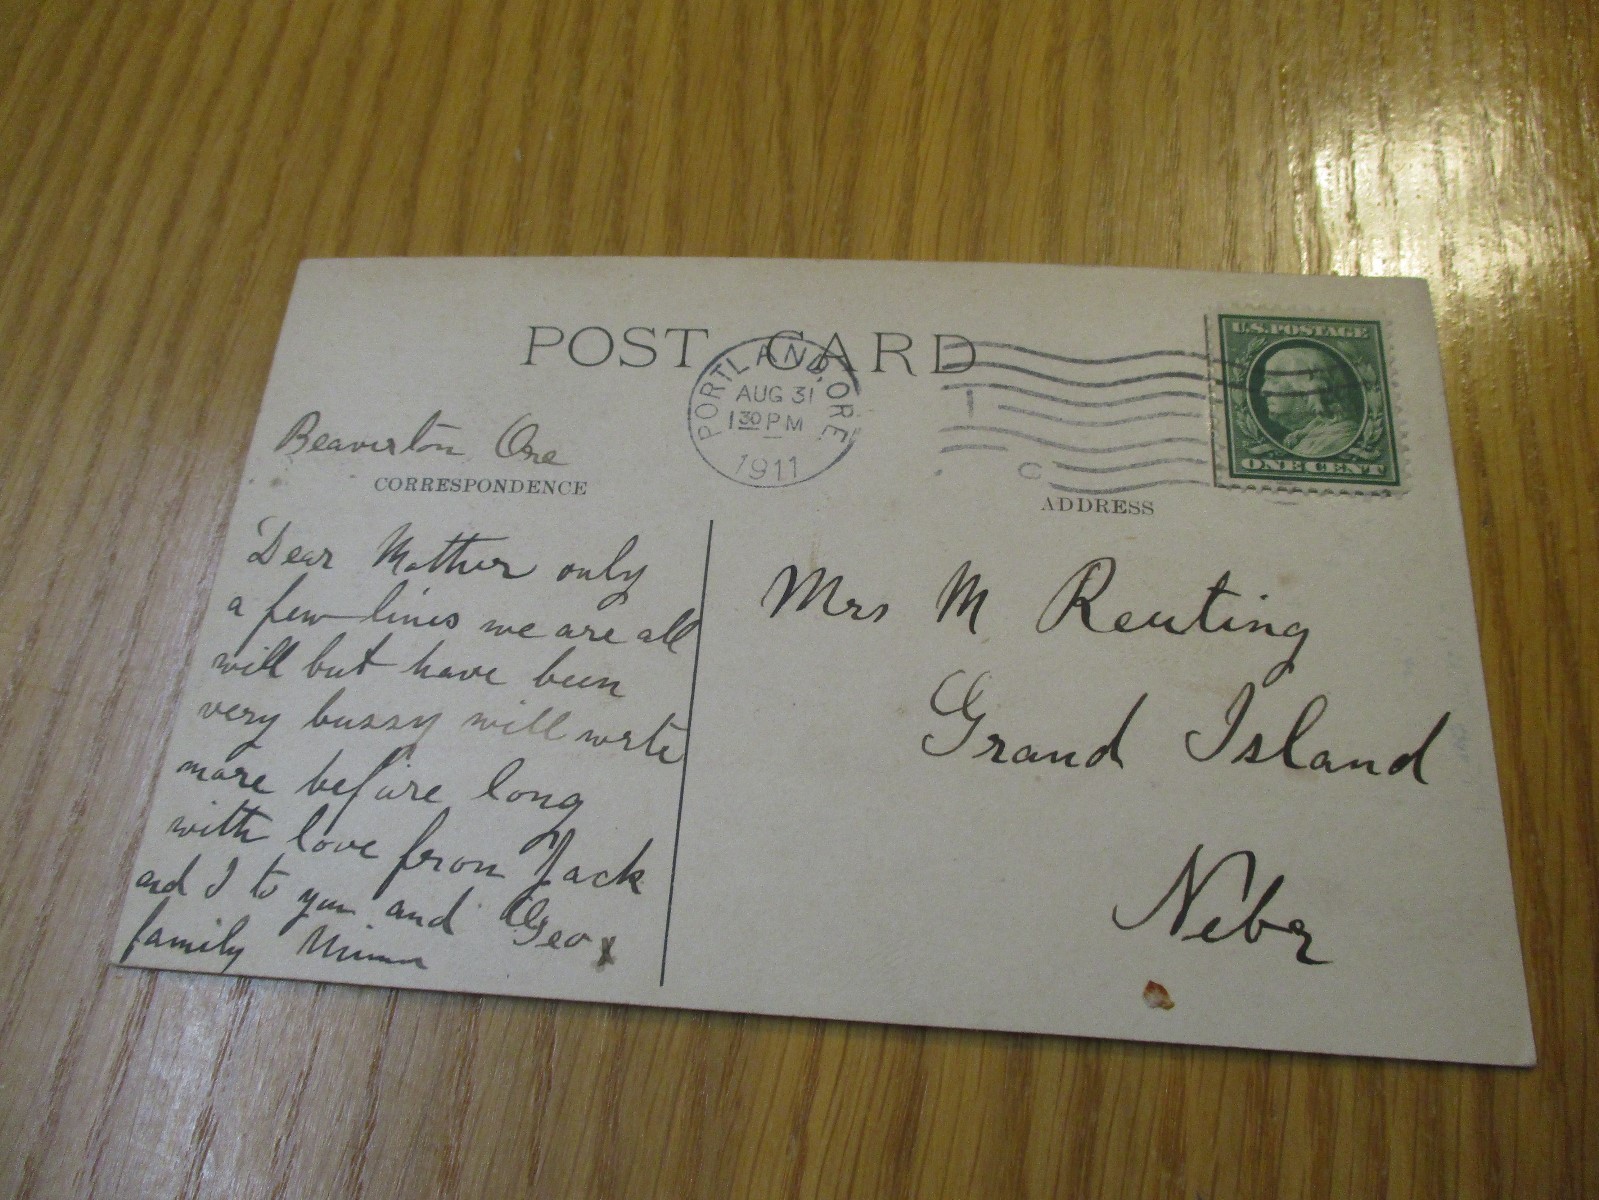 POST CARD
PORTLAND, ORE.
AUG 31
1 30 PM
1911
1
C
U.S. POSTAGE
ONE CENT
Beaverton Ore
CORRESPONDENCE
Dear Mother only
a few lines we are all
will but have been
very bussy will write
more before long
with love from Jack
and I to you and Geo
family Minnn
ADDRESS
Mrs M Reuting
Grand Island
Nebr